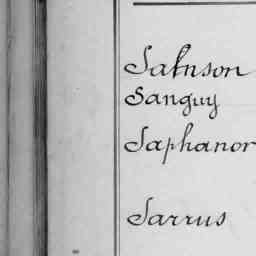 Salnson
Sanguy
Saphanor
Sarrus